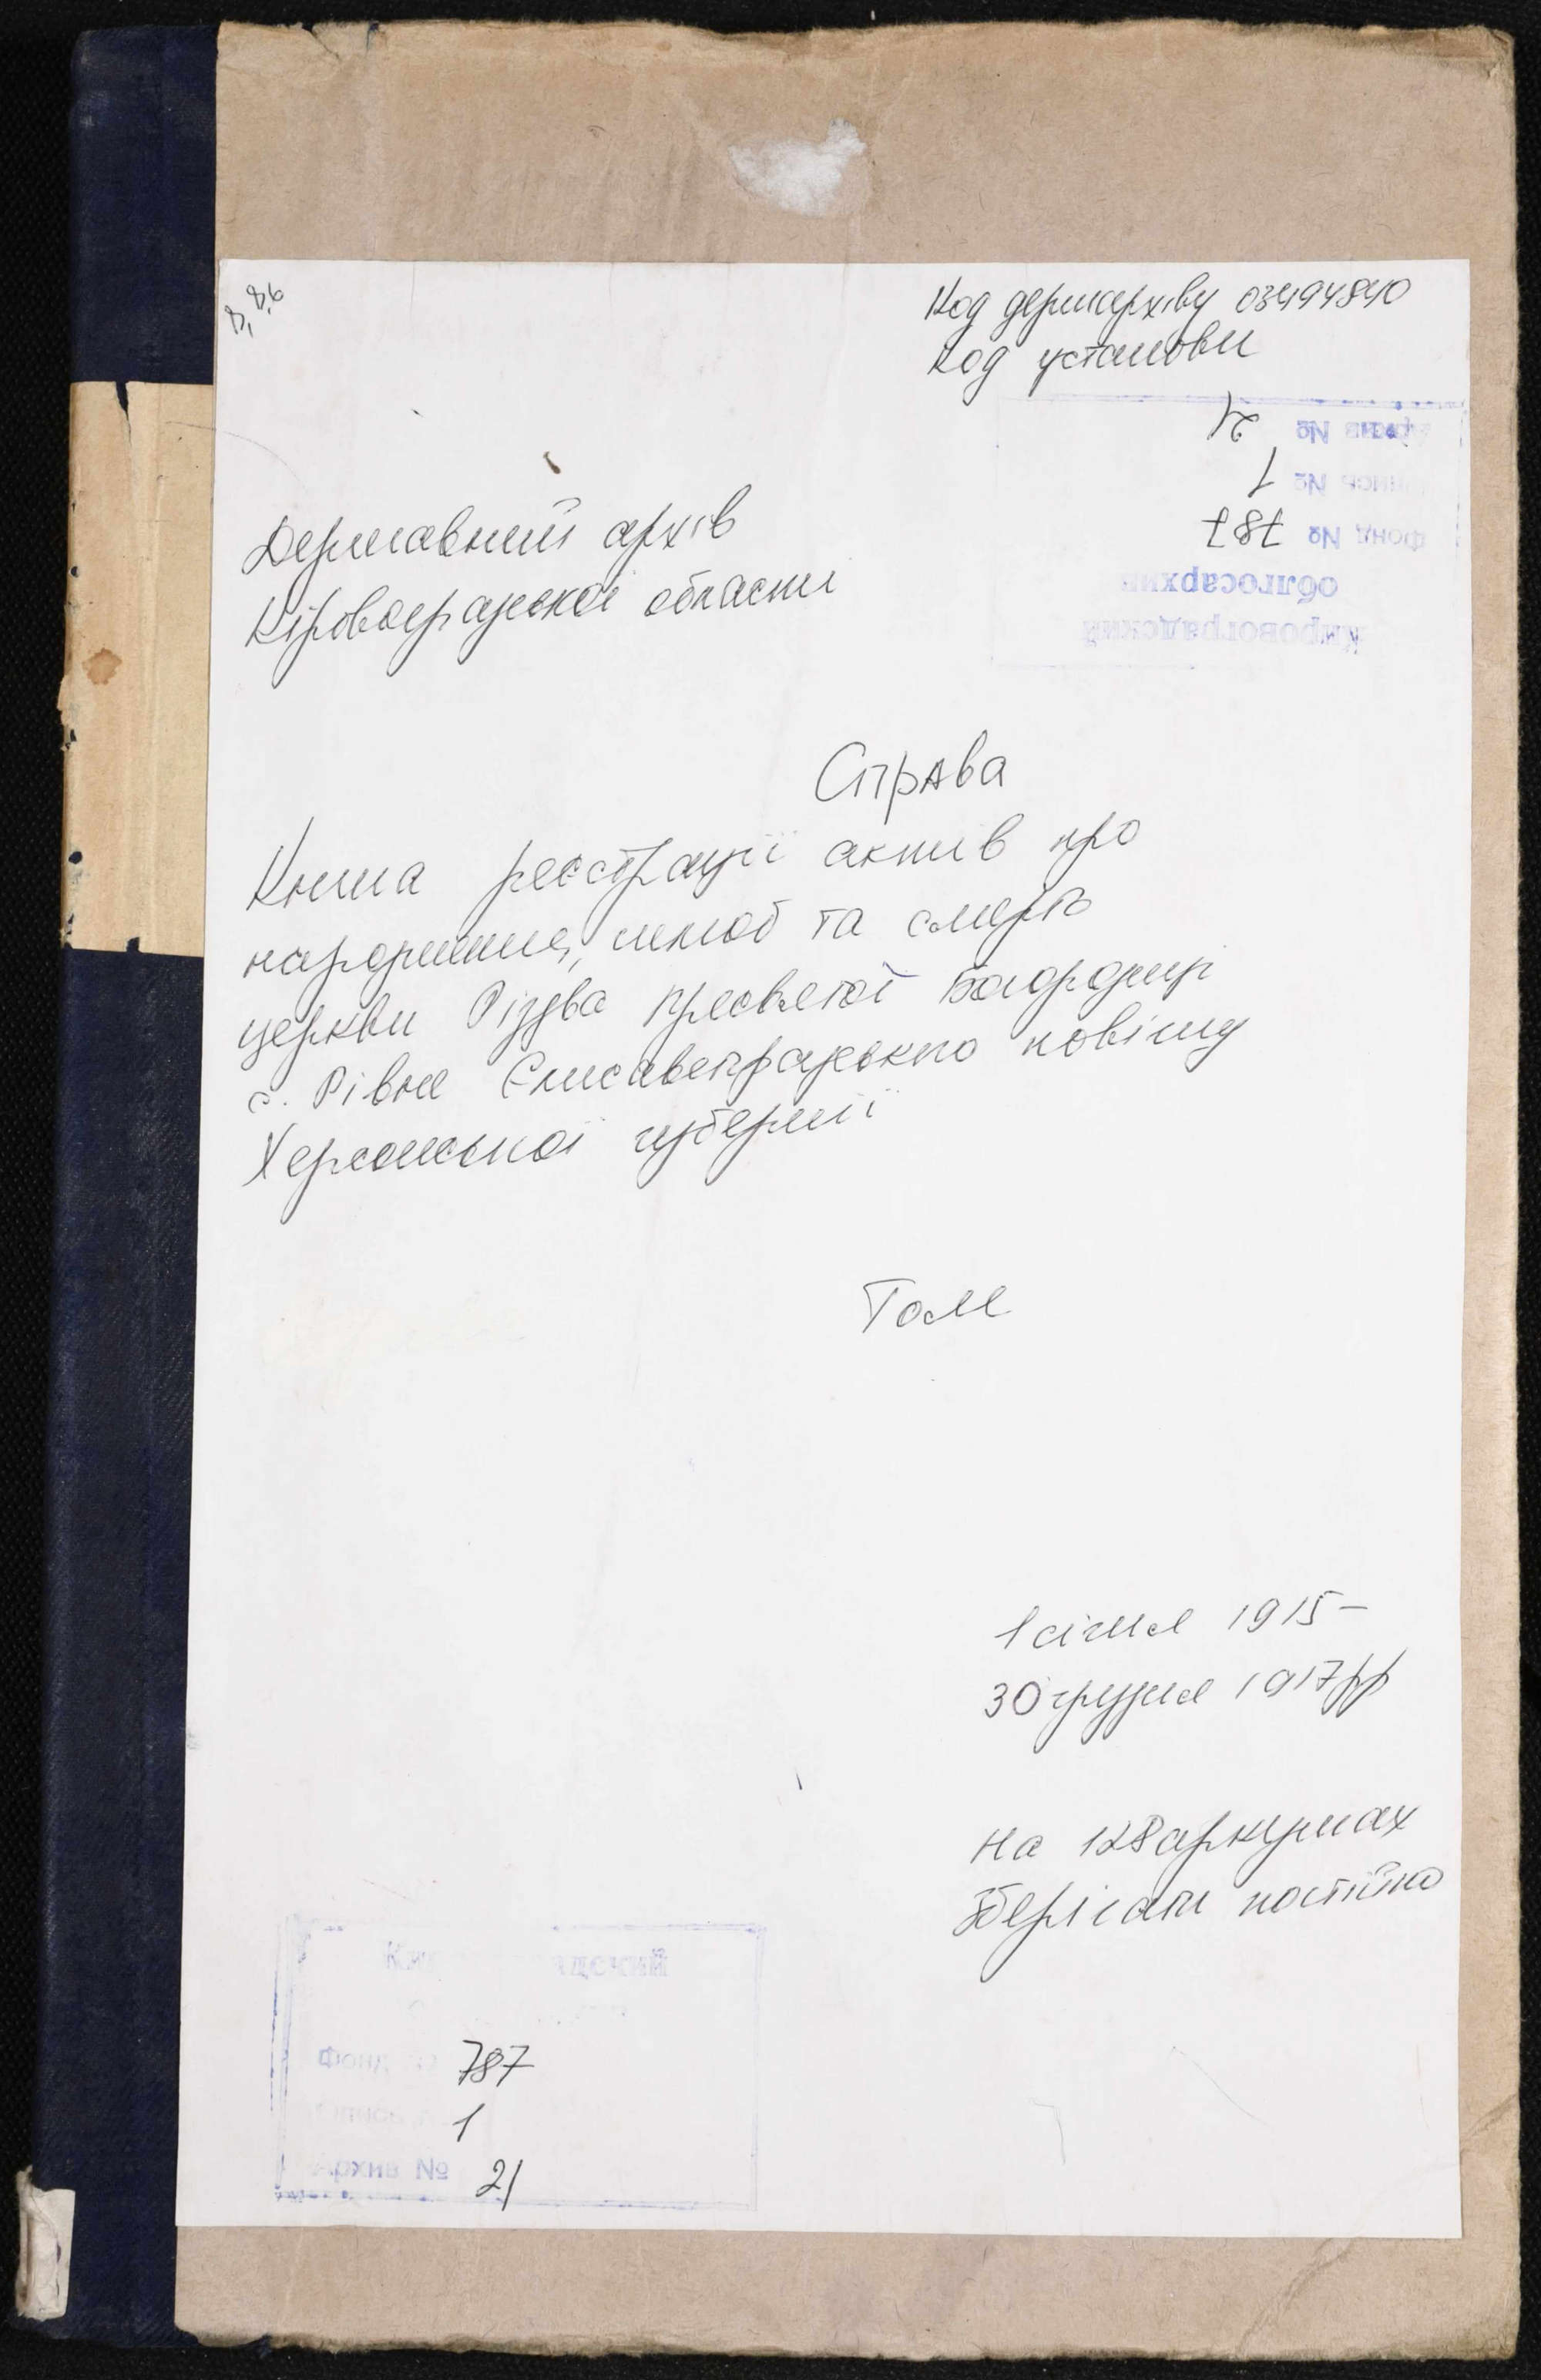 8,86
Код держархіву 03494840
Код установи
Кировоградский
облгосархив
Фонд № 787
Опись № 1
Архив № 21
Державний архів
Кіровоградської області
Справа
Книга реєстрації актів про
народження, шлюб та смерть
церкви Різдва Пресвятої Богородиці
с. Рівне Єлисаветградського повіту
Херсонської губернії
Том
1 січня 1915 –
30 грудня 1917 рр
на 128 аркушах
Зберігати постійно
Кировоградский
Фонд № 787
Опись № 1
Архив № 21